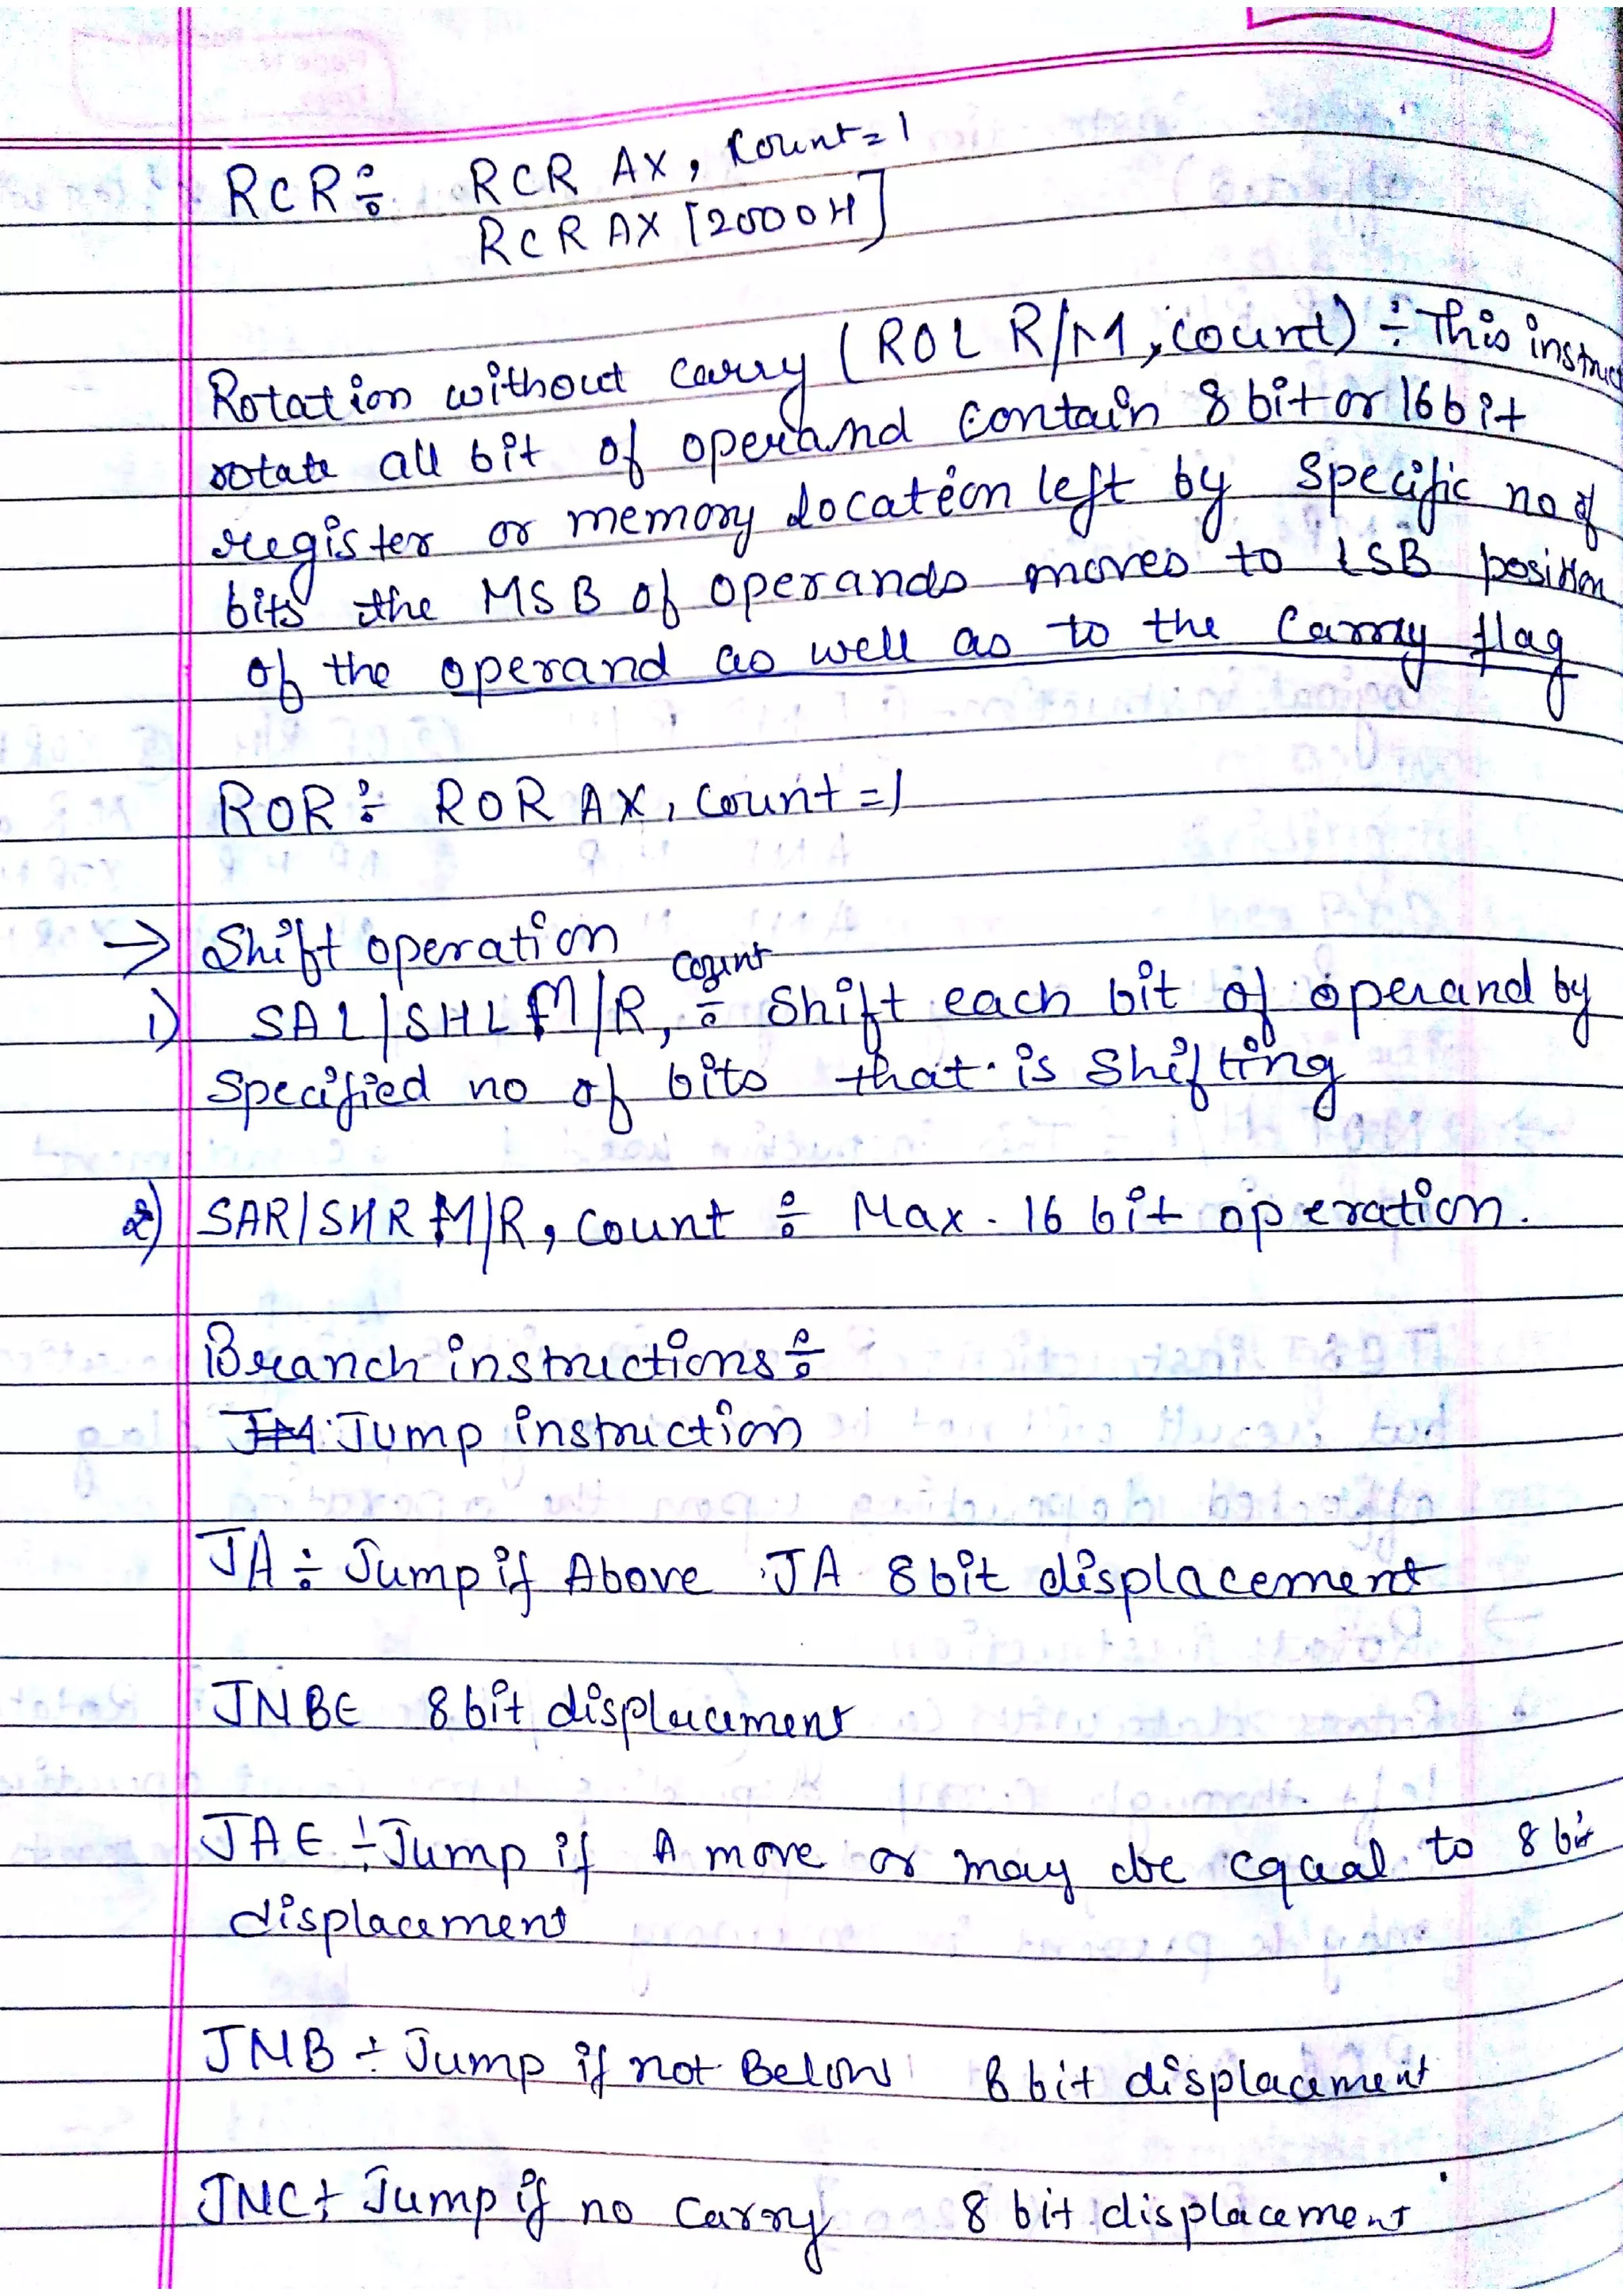 RCR ÷ RCR AX, Count=1
RCR AX [2000H]
Rotation without carry (ROL R/M, count) ÷ This instruc
rotate all bit of operand contain 8 bit or 16 bit
register or memory location left by specific no of
bits the MSB of operands moves to LSB position
of the operand as well as to the Carry flag
ROR ÷ ROR AX, count =1
→ Shift operation
1) SAL/SHL M/R, count ÷ Shift each bit of operand by
specified no of bits that is shifting
2) SAR/SHR M/R, count ÷ Max. 16 bit operation.
Branch instructions ÷
Jump instruction
JA ÷ Jump if Above JA 8 bit displacement
JNBE 8 bit displacement
JAE ÷ Jump if A more or may be equal to 8 bit
displacement
JNB ÷ Jump if not Below 8 bit displacement
JNC ÷ Jump if no Carry 8 bit displacement